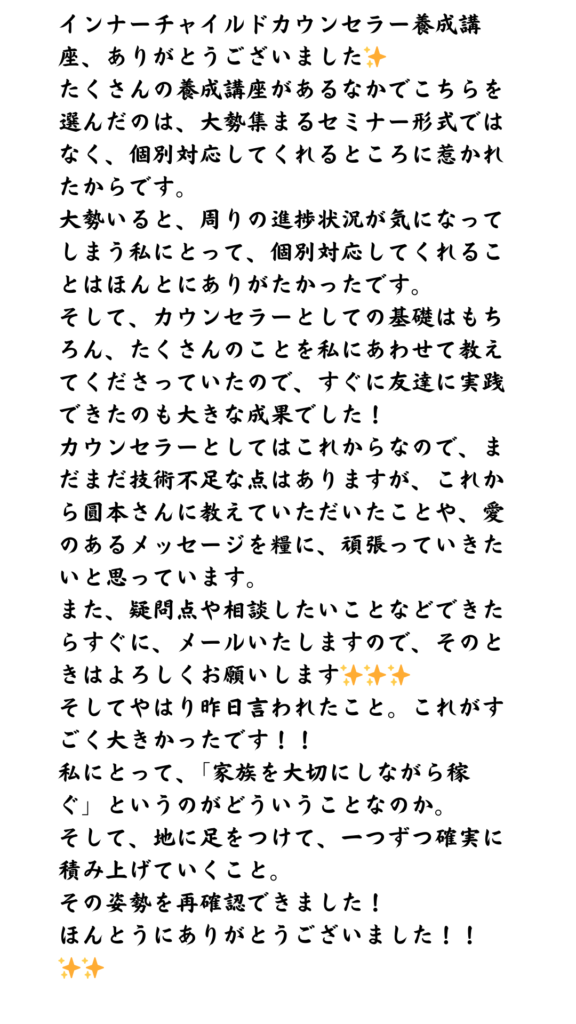 インナーチャイルドカウンセラー養成講
座、ありがとうございました✨
たくさんの養成講座があるなかでこちらを
選んだのは、大勢集まるセミナー形式では
なく、個別対応してくれるところに惹かれ
たからです。
大勢いると、周りの進捗状況が気になって
しまう私にとって、個別対応してくれるこ
とはほんとにありがたかったです。
そして、カウンセラーとしての基礎はもち
ろん、たくさんのことを私にあわせて教え
てくださっていたので、すぐに友達に実践
できたのも大きな成果でした！
カウンセラーとしてはこれからなので、ま
だまだ技術不足な点はありますが、これか
ら圓本さんに教えていただいたことや、愛
のあるメッセージを糧に、頑張っていきた
いと思っています。
また、疑問点や相談したいことなどできた
らすぐに、メールいたしますので、そのと
きはよろしくお願いします✨✨✨
そしてやはり昨日言われたこと。これがす
ごく大きかったです！！
私にとって、「家族を大切にしながら稼
ぐ」というのがどういうことなのか。
そして、地に足をつけて、一つずつ確実に
積み上げていくこと。
その姿勢を再確認できました！
ほんとうにありがとうございました！！
✨✨